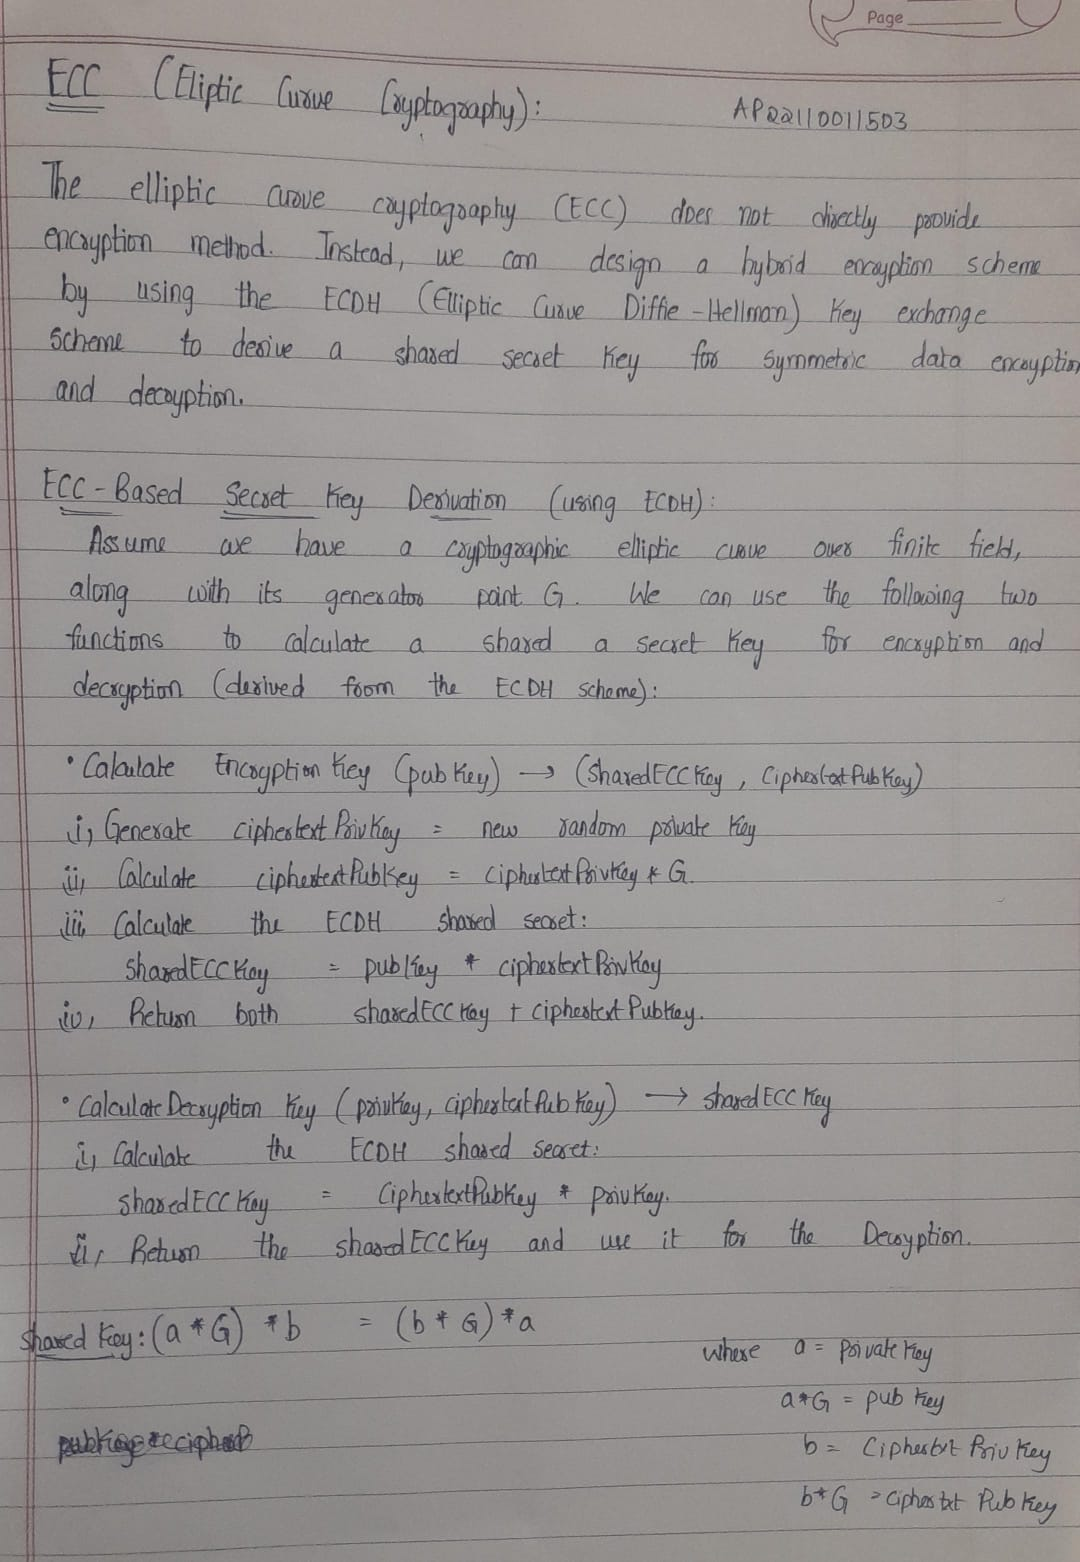 Page
ECC (Eliptic Curve Cryptography):
AP22110011503
The elliptic curve cryptography (ECC) does not directly provide
encryption method. Instead, we can design a hybrid encryption scheme
by using the ECDH (Elliptic Curve Diffie-Hellman) Key exchange
Scheme to derive a shared secret key for symmetric data encryption
and decryption.
ECC-Based Secret Key Derivation (using ECDH):
Assume we have a cryptographic elliptic curve over finite field,
along with its generator point G. We can use the following two
functions to calculate a shared a secret key for encryption and
decryption (derived from the ECDH scheme):
• Calculate Encryption Key (pub Key) → (SharedECC Key, Ciphertext Pub Key)
i, Generate ciphertext Priv Key = new random private key
ii, Calculate ciphertext PubKey = ciphertext PrivKey * G.
iii, Calculate the ECDH shared secret:
SharedECC Key = pubKey * ciphertext PrivKey
iv, Return both sharedECC Key + ciphertext PubKey.
• Calculate Decryption Key (privKey, ciphertext Pub Key) → sharedECC Key
i, Calculate the ECDH shared secret:
sharedECC Key = CiphertextPubKey * privKey.
ii, Return the sharedECC Key and use it for the Decryption.
Shared Key: (a * G) * b = (b * G) * a
where a = private key
a*G = pub key
b = Ciphertxt Priv Key
b*G = Ciphertxt Pub Key